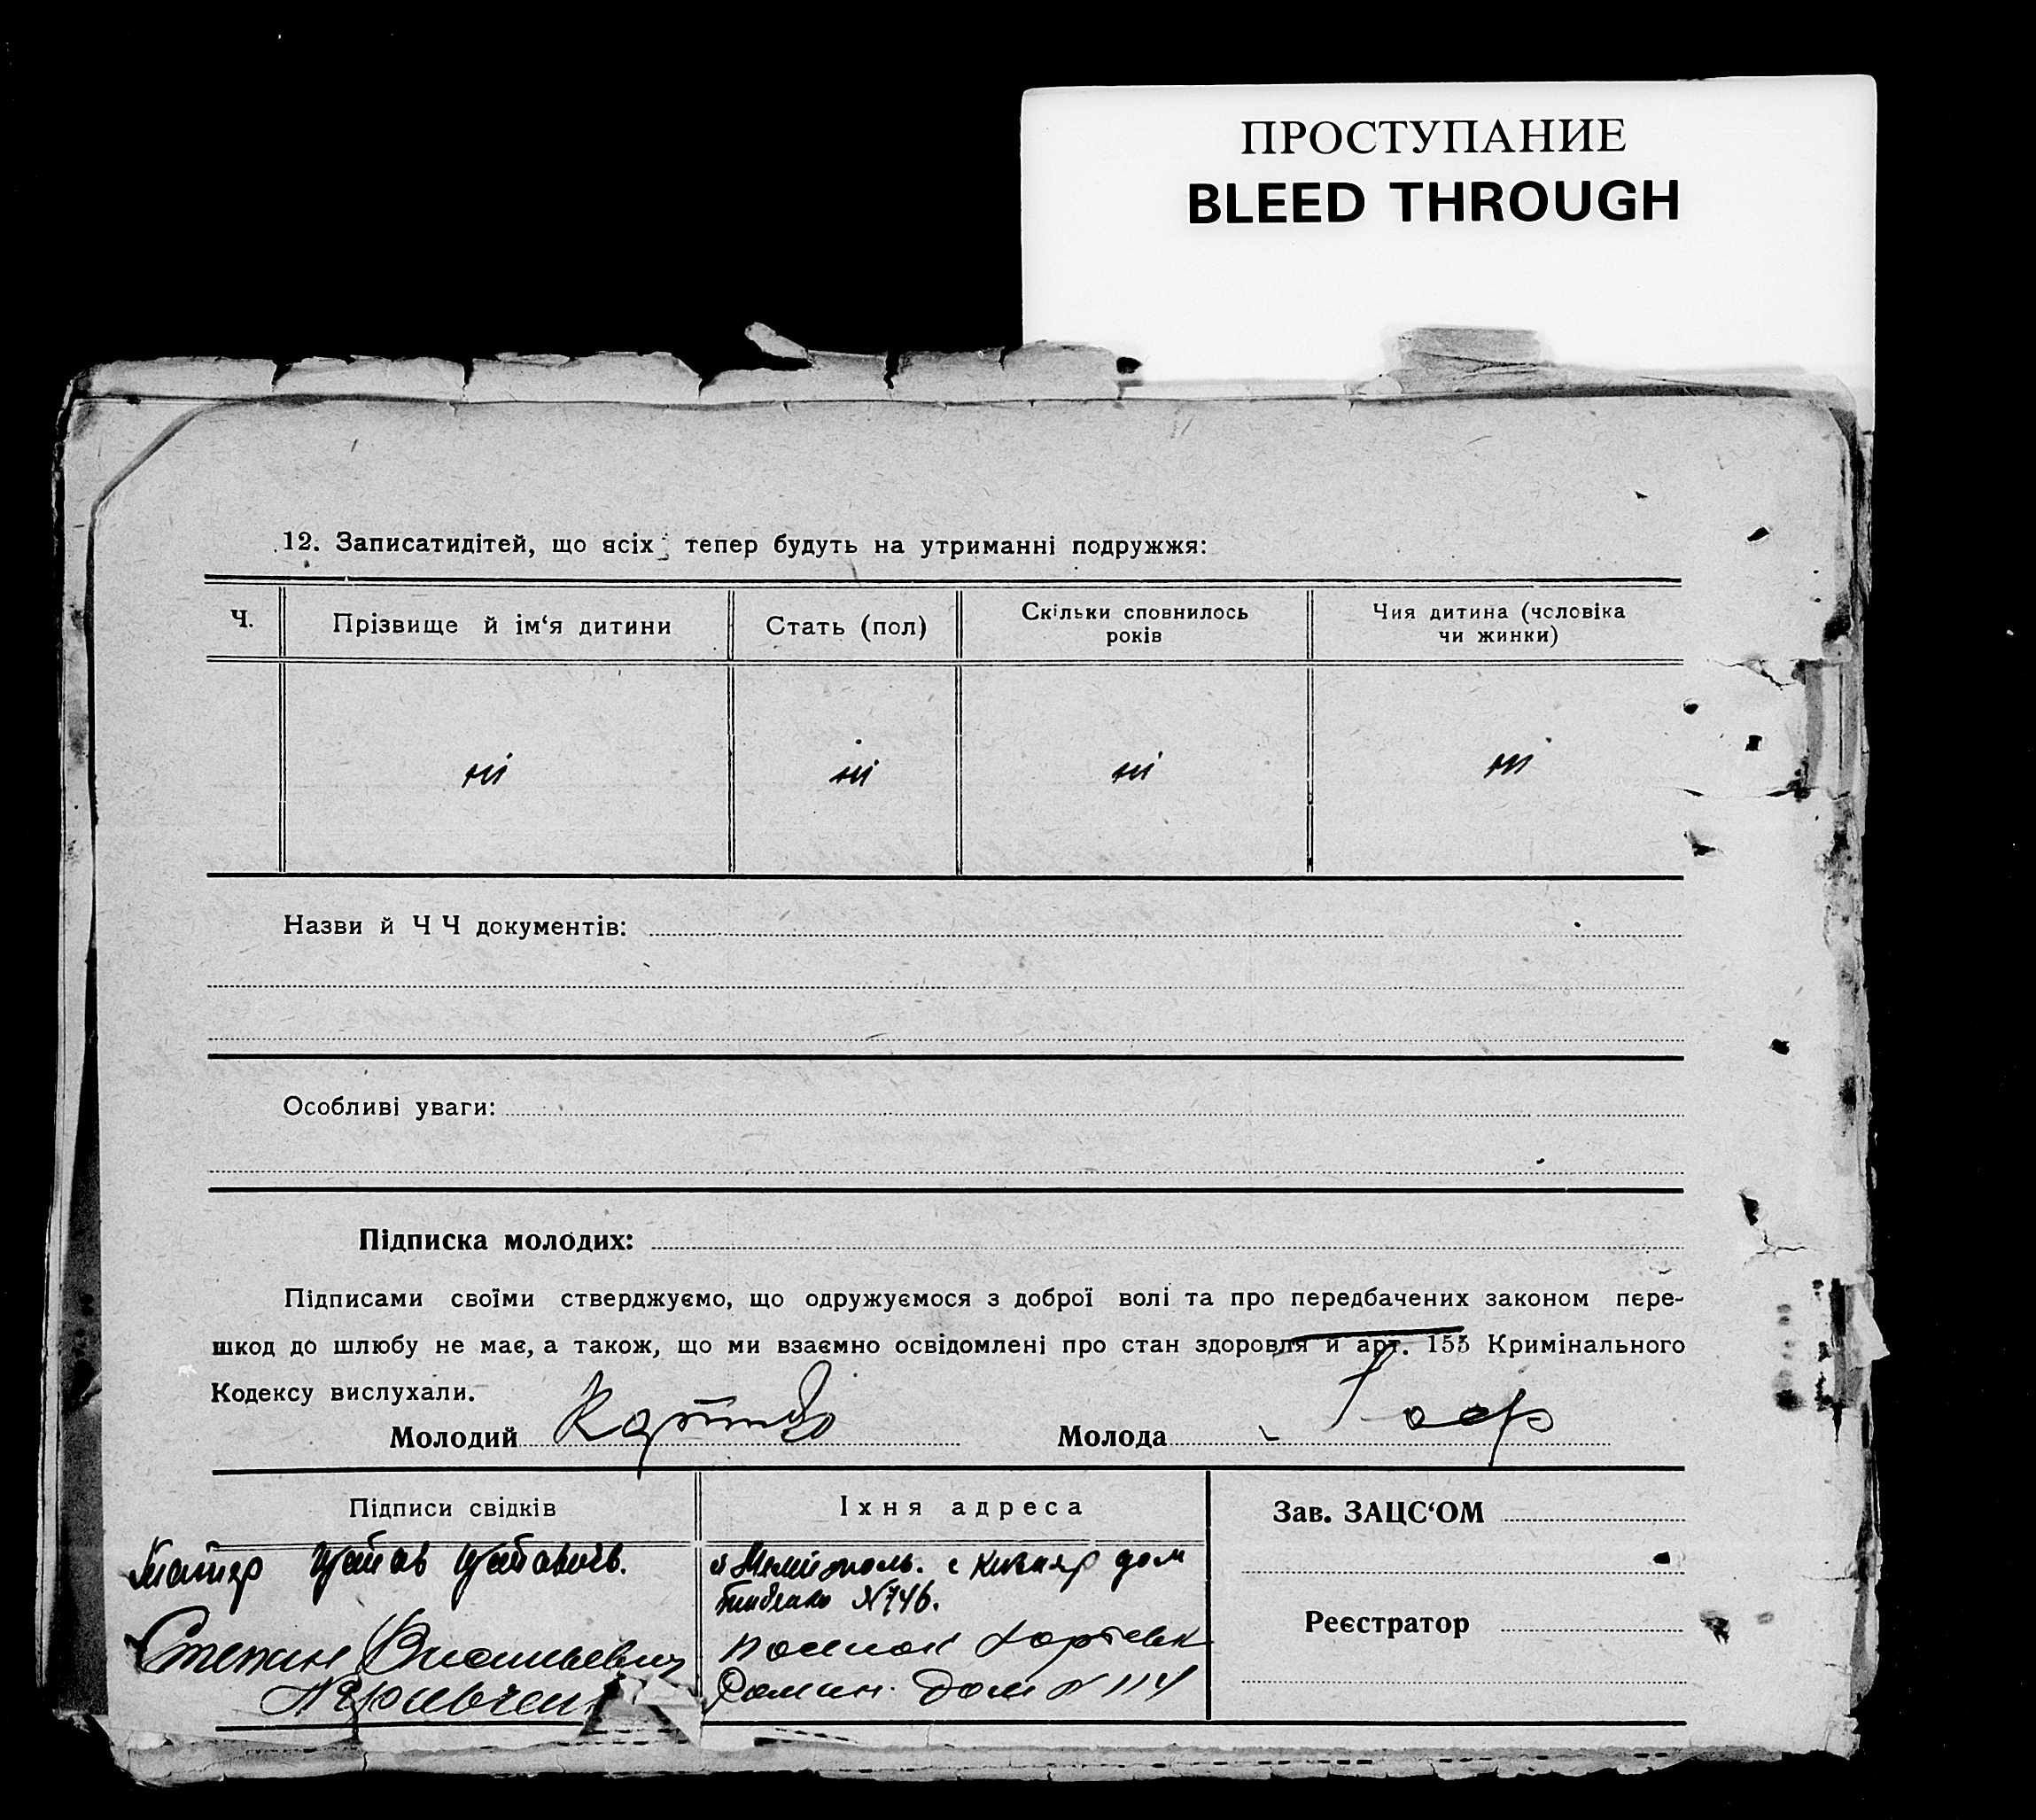 ПРОСТУПАНИЕ
BLEED THROUGH
12. Записатидітей, що всіх тепер будуть на утриманні подружжя:
Ч.
Прізвище й ім‘я дитини
Стать (пол)
Скільки сповнилось
років
Чия дитина (чоловіка
чи жинки)
ні ні ні ні
Назви й ЧЧ документів:
Особливі уваги:
Підписка молодих:
Підписами своїми стверджуємо, що одружуємося з доброї волі та про передбачених законом пере-
шкод до шлюбу не має, а також, що ми взаємно освідомлені про стан здоровля й арт. 155 Кримінального
Кодексу вислухали.
Молодий
Молода
Підписи свідків
Їхня адреса
Зав. ЗАЦС‘ОМ
дом
№ 746.
Степан
Реєстратор
дом № 114